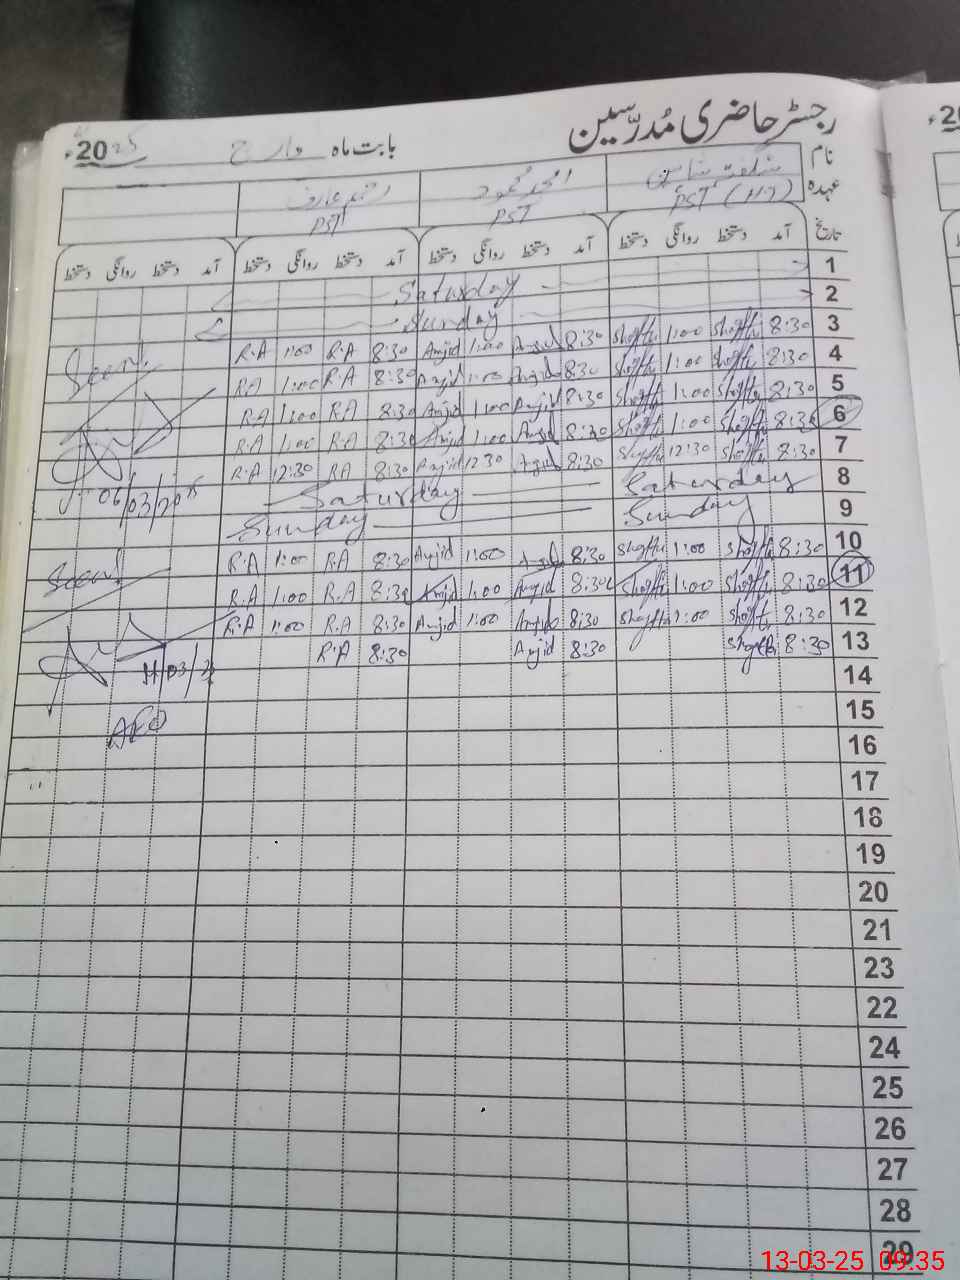 رجسٹر حاضری مُدرّسین
بابت ماہ مارچ 2025ء
نام شگفتہ شاہین امجد محمود
عہدہ PST (H.T) PST PST
تاریخ آمد دستخط روانگی دستخط آمد دستخط روانگی دستخط آمد دستخط روانگی دستخط آمد دستخط روانگی دستخط
Saturday 1
Sunday 2
Seen R.A 1:00 R.A 8:30 Amjid 1:00 Amjid 8:30 1:00 8:30 3
R.A 1:00 R.A 8:30 Amjid 1:00 Amjid 8:30 1:00 8:30 4
R.A 1:00 R.A 8:30 Amjid 1:00 Amjid 8:30 1:00 8:30 5
R.A 1:00 R.A 8:30 Amjid 1:00 Amjid 8:30 1:00 8:30 6
R.A 12:30 R.A 8:30 Amjid 12:30 Amjid 8:30 12:30 8:30 7
06/03/2025 Saturday Saturday 8
Sunday Sunday 9
Seen R.A 1:00 R.A 8:30 Amjid 1:00 Amjid 8:30 1:00 8:30 10
R.A 1:00 R.A 8:30 Amjid 1:00 Amjid 8:30 1:00 8:30 11
R.A 1:00 R.A 8:30 Amjid 1:00 Amjid 8:30 1:00 8:30 12
R.A 8:30 Amjid 8:30 8:30 13
11/03/25 14
AEO 15
16
17
18
19
20
21
23
22
24
25
26
27
28
29
13-03-25 09:35